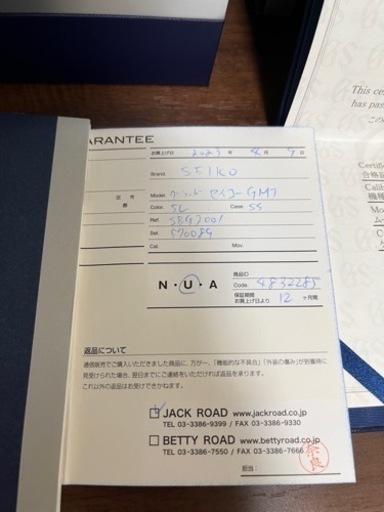 ARANTEE
お買上げ日 2023 年 8 月 9 日
Brand. SEIKO
Model. グランドセイコーGMT
Color. SL Case. SS
Ref.
Ser.
Cal. Mov.
N・U・A
商品ID
Code. 4832285
保証期間
お買上げ日より 12 ヶ月間
返品について
通信販売でご購入いただきました商品に、万が一、「機能的な不具合」「外装の傷み」が到着時に
見受けられた場合、翌日までにご連絡をいただければ返品を承ります。
これ以外の返品はお受けできかねます。
JACK ROAD www.jackroad.co.jp
TEL 03-3386-9399 / FAX 03-3386-9330
BETTY ROAD www.bettyroad.co.jp
TEL 03-3386-7550 / FAX 03-3386-7666
担当： 奈良
This ce
has pas
Certific
合格証
Calib
機種